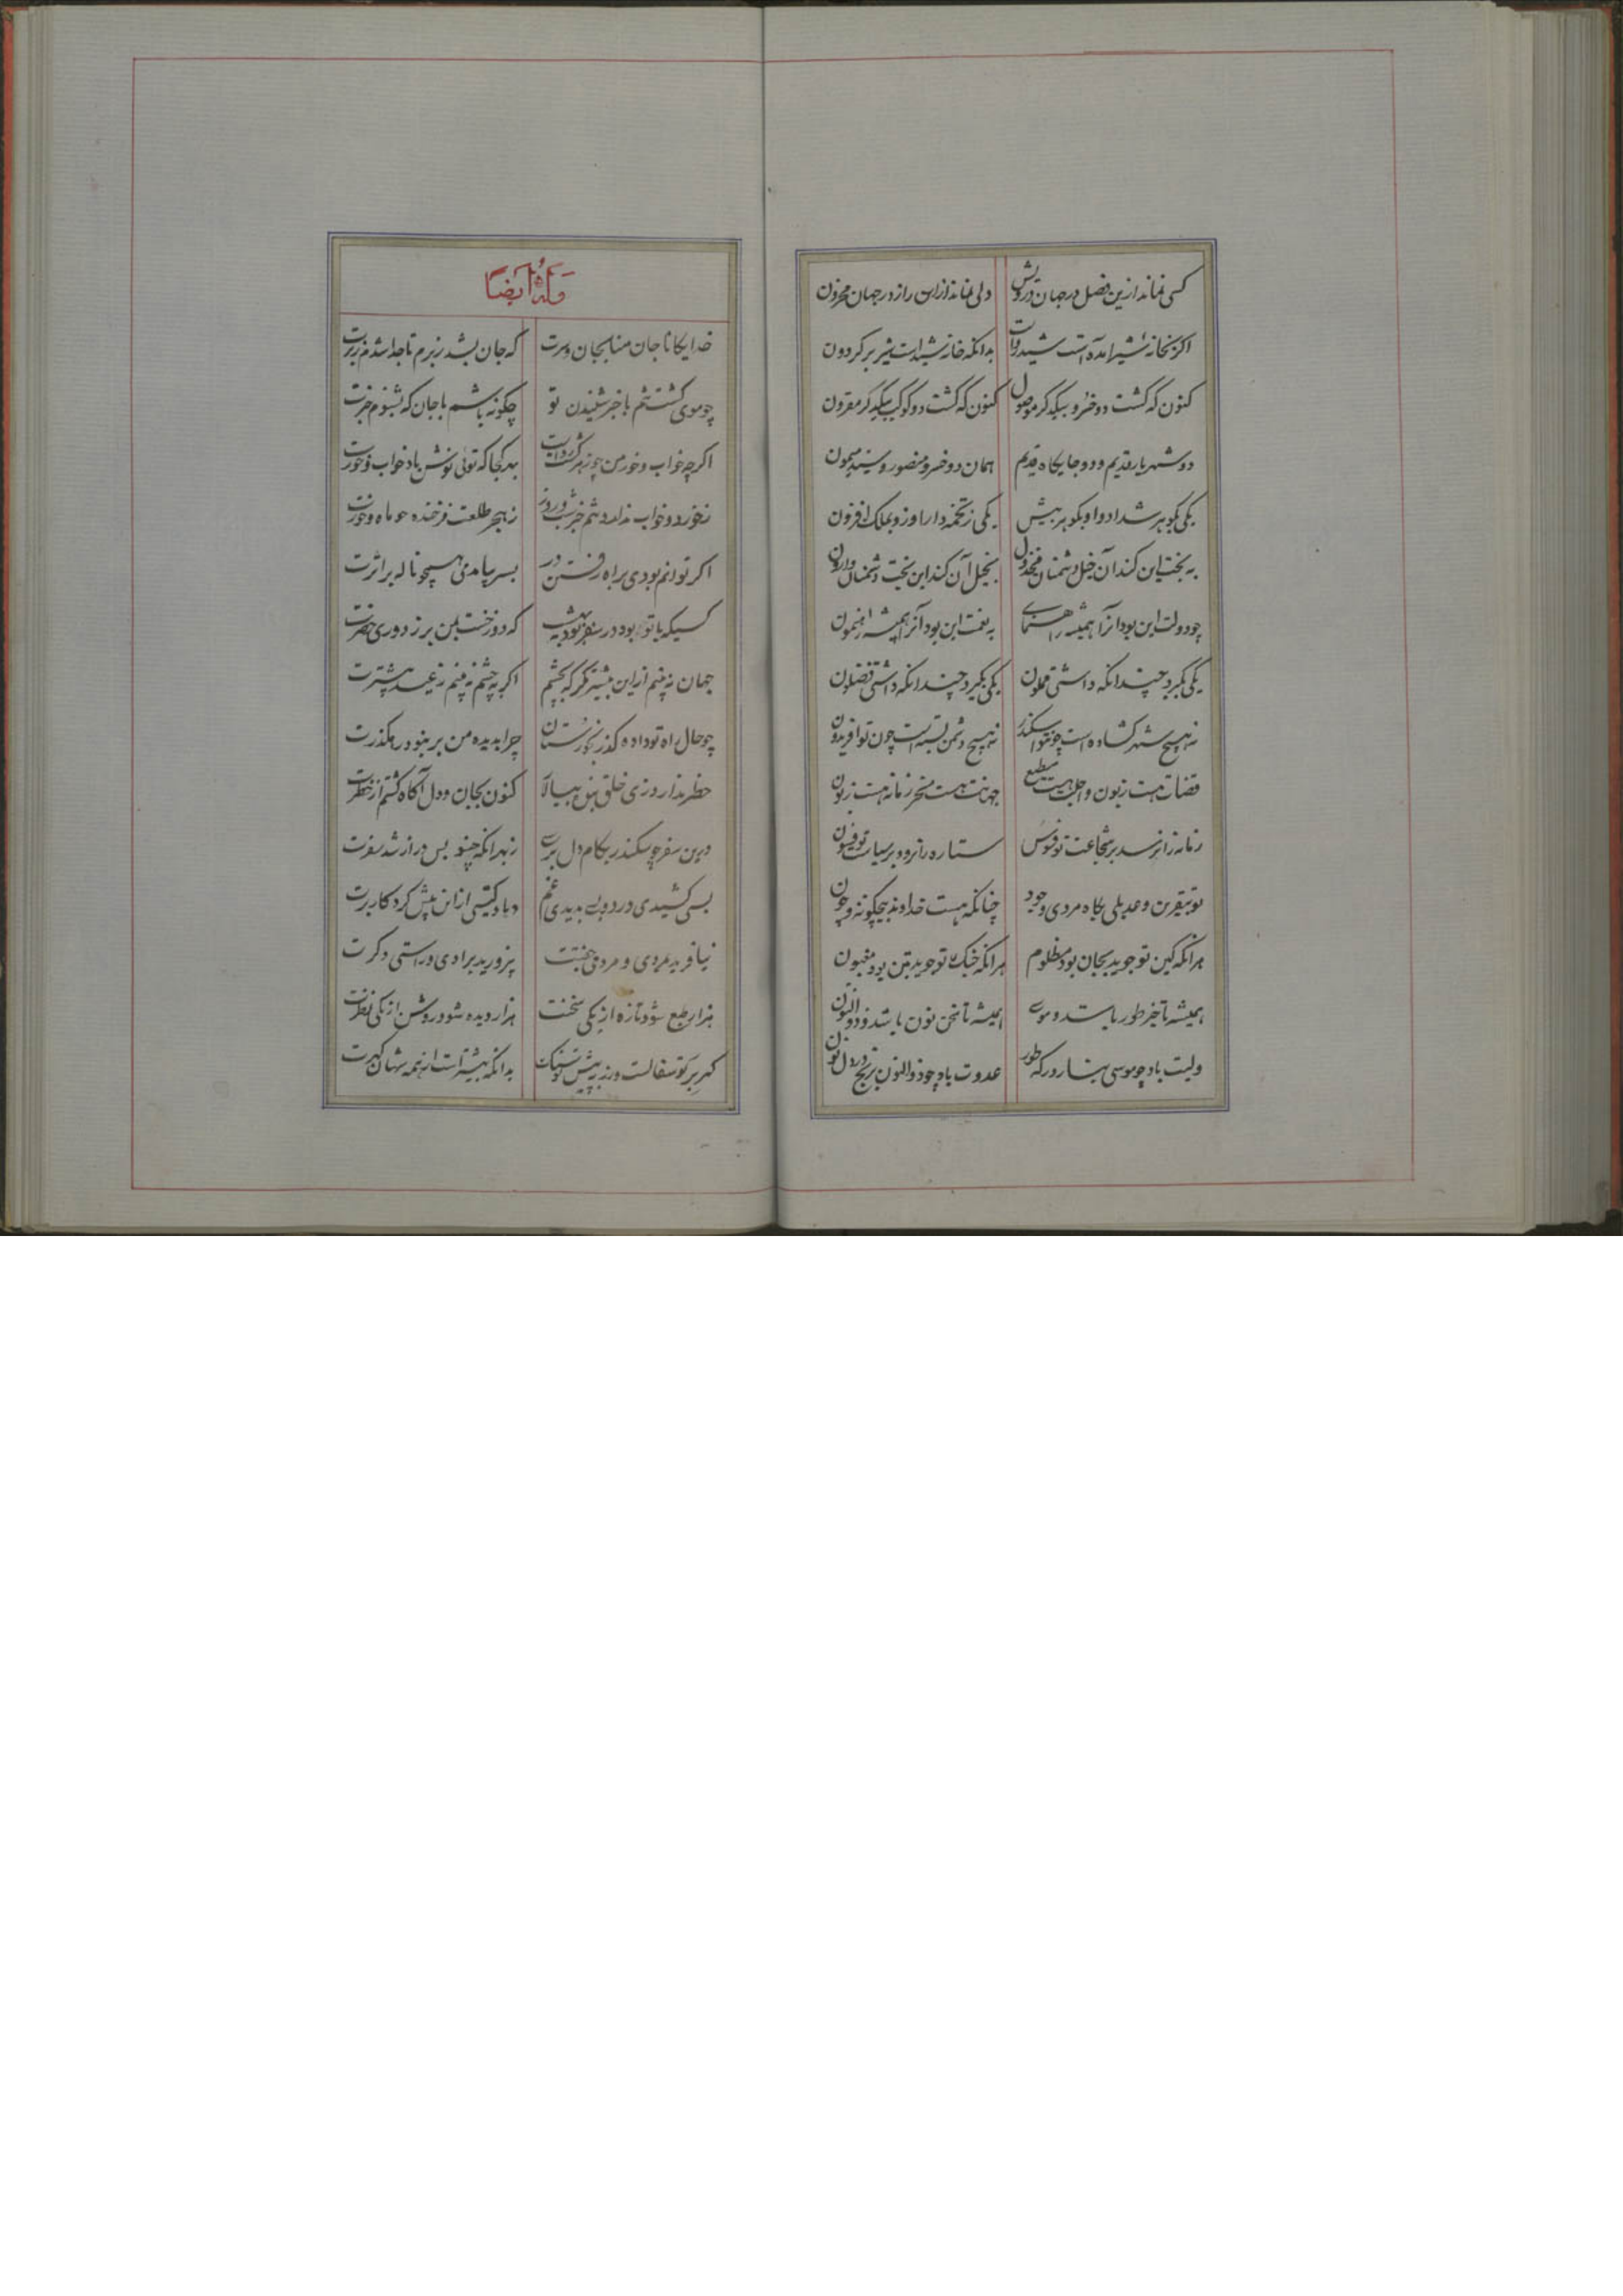 کسی نماند ازین فضل در جهان درویش دلی نماند ازان راز در جهان محزون
اگر بخانه شیر آمده است شید رواست بدانکه خانه شید است شیر بر گردون
کنون که گشت دو خسرو بیکدگر موصول کنون که گشت دو کوکب بیکدگر مقرون
دو شهریار قدیم و دو جایگاه قدیم همان دو خسرو منصور و سید میمون
یکی بگوهر شداد و او بگوهر بیش یکی ز تخمه دارا و زو بملک افزون
به بخت این کند آن خیل دشمنان مخذول بخیل آن کند این بخت دشمنان وارون
چو دولت این بود آنرا همیشه راهنمای به نعمت این بود آنرا همیشه راهنمون
یکی بگیرد چندانکه داشتی مملون یکی بگیرد چندانکه داشتی فضلون
نه هیچ شهر گشاده است چون تو اسکندر نه هیچ دشمن بسته است چون تو افریدون
قضات هست زبون و اجلت هست مطیع جهانت هست مسخر زمانه هست زبون
زمانه را نرسد بر شجاعت تو فسوس ستاره را نرود بر سیاست تو فسون
تو بیقرین و عدیلی بگاه مردی وجود چنانکه هست خداوند بیچگونه و چون
هرانکه کین تو جوید بجان بود مظلوم هرانکه جنک تو جوید بتن بود مغبون
همیشه تا خبر طور باشد و موسی همیشه تا سخن نون باشد و ذوالنون
ولیت باد چو موسی بنار در که طور عدوت باد چو ذوالنون برنج در دل نون
وله ایضا
خدایگانا جان منا بجان و سرت که جان بشد ز برم تا جدا شدم ز برت
چو موی گشتستم با خبر شنیدن تو چگونه باشم با جان که نشنوم خبرت
اگرچه خواب و خور من چو زهر گشت رواست بهر کجا که توئی نوش باد خواب و خورت
ز خورد و خواب ندارد تنم خبر شب و روز ز هجر طلعت فرخنده چو ماه و خورت
اگر توانم بودی براه رفتن در بسر بیامدمی همچو ناله بر اثرت
کسیکه با تو بود در سفر بود به بهشت که دوزخست بمن بر ز دوری حضرت
جهان نه بینم ازین بیشتر مگر که بچشم اگر به چشم نه بینم نه عید پیشترت
چو حال راه تو داده گذر بخوزستان چرا بدیده من بر نبود رهگذرت
خطر ندارد زی خلق بیالا کنون بجان و دل آگاه گشتم از خطرت
درین سفر چو سکندر بکام دل برسی زبهر انکه چنو بس دراز شد سفرت
بسی کشیدی درد و بسی بدیدی غم دو باد گیتی ازان پیش کرد کار برت
نیافرید مردی و مردمی جفتت بپرورید برادی و راستی دگرت
هزار طبع شود تازه از یکی سخنت هزار دیده شود روشن از یکی نظرت
گهر بر تو سفالست و زر به پیش تو سنگ بدانکه بیشتر است از همه شهان گهرت